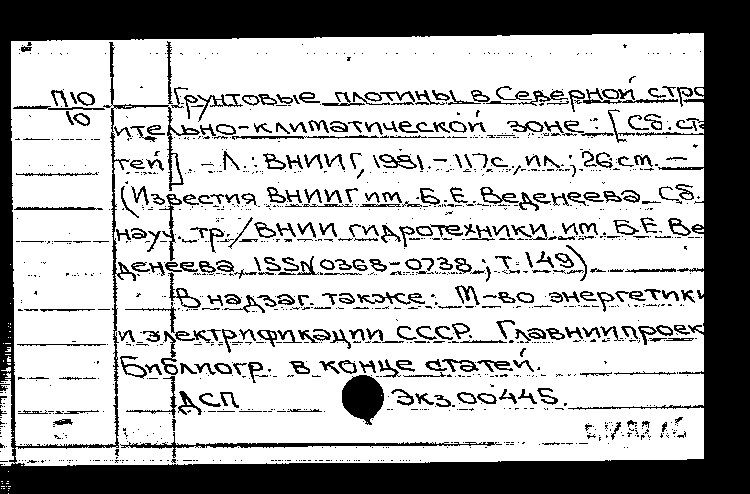 П10 Грунтовые плотины в Северной стро
10
ительно-климатической зоне: [Сб. ста
тей]. - Л.: ВНИИГ, 1981. - 117с., ил.; 26 cm. -
(Известия ВНИИГ им. Б.Е. Веденеева. Сб.
науч. тр./ВНИИ гидротехники им. Б.Е. Ве
денеева, ISSN 0368-0738; т. 149).
В надзаг. также: М-во энергетики
и электрификации СССР. Главниипроект
Библиогр. в конце статей.
ДСП Экз.00445.